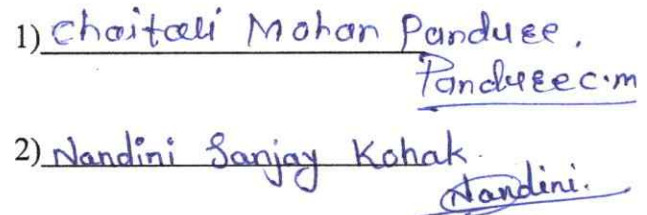 1) Chaitali Mohan Panduee.
Pandueec.m
2) Nandini Sanjay Kohak.
Nandini.